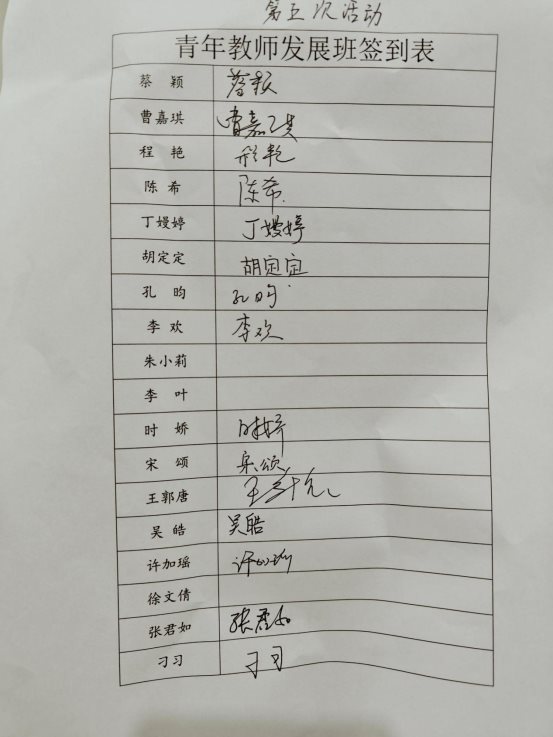 第五次活动
青年教师发展班签到表
蔡 颖 蔡颖
曹嘉琪 曹嘉琪
程 艳 程艳
陈 希 陈希
丁嫚婷 丁嫚婷
胡定定 胡定定
孔 昀 孔昀
李 欢 李欢
朱小莉
李 叶
时 娇 时娇
宋 颂 宋颂
王郭唐 王
吴 皓 吴皓
许加瑶 许加瑶
徐文倩
张君如 张君如
刁习 刁习